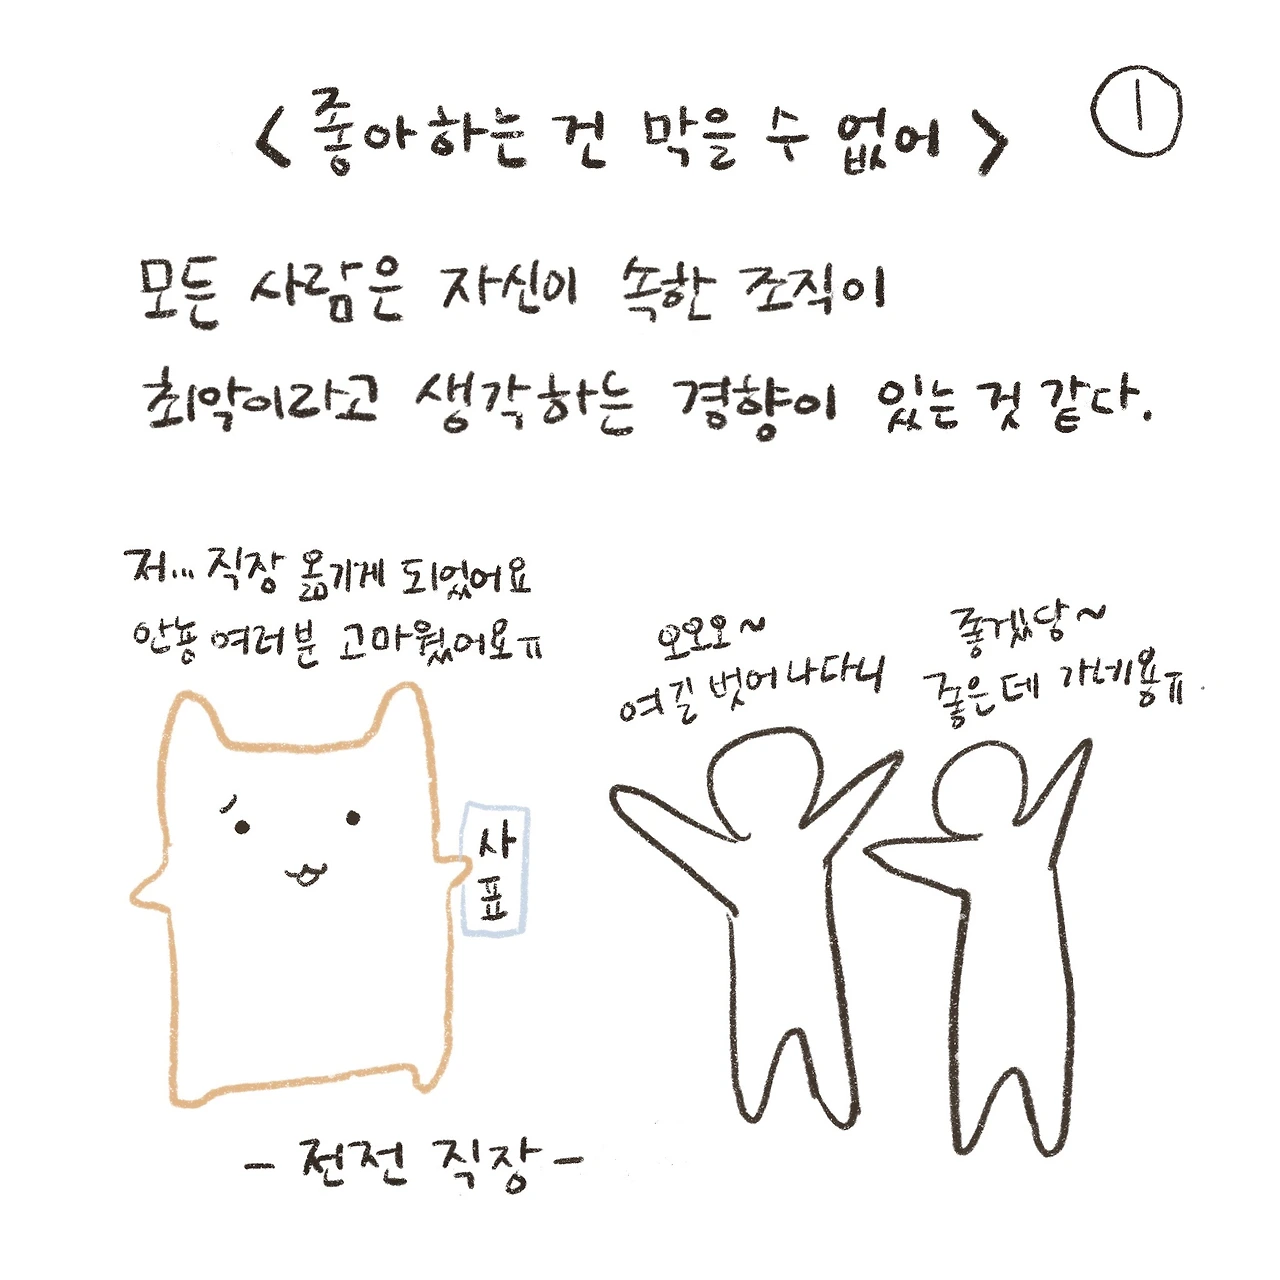 <좋아하는 건 막을 수 없어>
1
모든 사람은 자신이 속한 조직이
최악이라고 생각하는 경향이 있는 것 같다.
저... 직장 옮기게 되었어요
안뇽 여러분 고마웠어요ㅠ
오오오~
여길 벗어나다니
좋겠당~
좋은데 가네용ㅠ
사
표
- 전전 직장 -